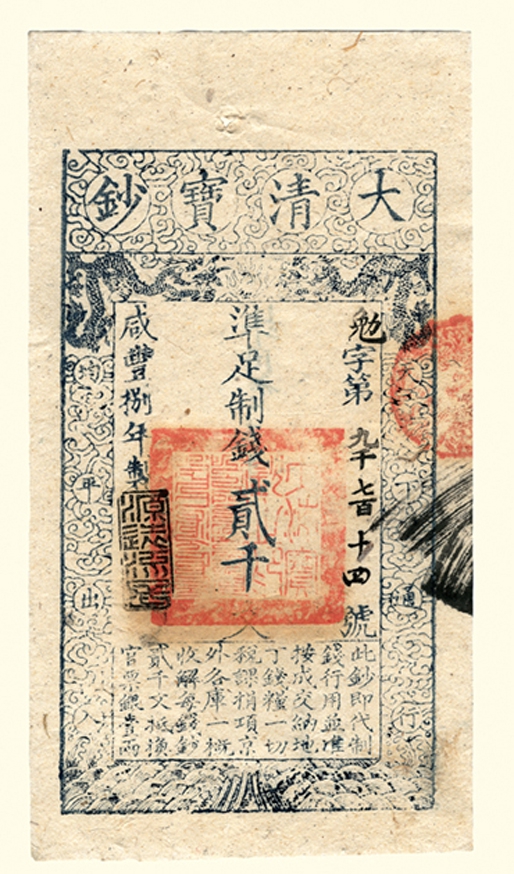 大清寶鈔
勉字第九千七百十四號
準足制錢貳千文
咸豐捌年製
天下通行
均平出入
此鈔即代制
錢行用並准
按成交納地
丁錢糧一切
稅課捐項京
外各庫一概
收解每錢鈔
貳千文抵換
官票銀壹兩